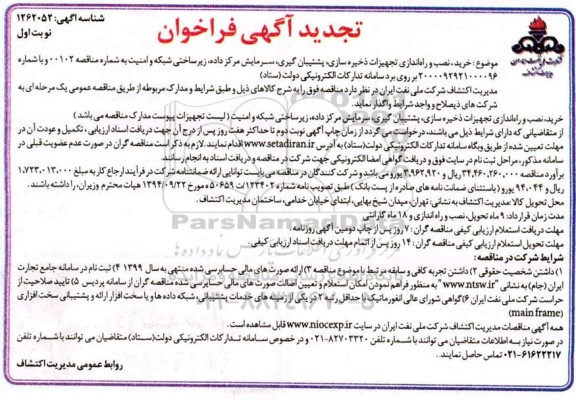 شناسه آگهی: ۱۲۶۲۰۵۲
نوبت اول
تجدید آگهی فراخوان
موضوع : خرید، نصب و راه‌اندازی تجهیزات ذخیره سازی، پشتیبان گیری، سرمایش مرکز داده، زیرساختی شبکه و امنیت به شماره مناقصه ۰۰۱۰۲ و با شماره
۲۰۰۰۰۹۲۹۲۱۰۰۰۰۹۶ بر روی برد سامانه تدارکات الکترونیکی دولت (ستاد)
مدیریت اکتشاف شرکت ملی نفت ایران در نظر دارد مناقصه فوق را به شرح کالاهای ذیل و طبق شرایط و مدارک مربوطه از طریق مناقصه عمومی یک مرحله ای به
شرکت های ذیصلاح و واجد شرایط واگذار نماید.
خرید، نصب و راه‌اندازی تجهیزات ذخیره سازی، پشتیبان گیری، سرمایش مرکز داده، زیرساختی شبکه و امنیت ( لیست تجهیزات پیوست مدارک مناقصه می باشد )
از متقاضیانی که دارای شرایط ذیل می باشند، درخواست می گردد از زمان چاپ آگهی نوبت دوم تا حداکثر هفت روز پس از درج آن جهت دریافت اسناد ارزیابی ، تکمیل و عودت آن در
مهلت تعیین شده از طریق وبگاه سامانه تدارکات الکترونیکی دولت(ستاد) به آدرس www.setadiran.ir اقدام نمایند. لازم به ذکر است مناقصه گران در صورت عدم عضویت قبلی در
سامانه مذکور، مراحل ثبت نام در سایت فوق و دریافت گواهی امضا الکترونیکی جهت شرکت در مناقصه و دریافت اسناد به انجام رسانند.
برآورد مناقصه ۳۴,۴۶۰,۲۶۰,۰۰۰ ریال و ۳,۹۶۲,۹۲۰ یورو می باشد و شرکت کنندگان در مناقصه می بایست توانایی ارائه ضمانتنامه شرکت در فرآیند ارجاع کار به مبلغ ۱,۷۲۳,۰۱۳,۰۰۰
ریال و ۹۴,۰۴۴ یورو (باستثنای ضمانت نامه های صادره از پست بانک ) طبق تصویب نامه شماره ۱۲۳۴۰۲/ت ۵۰۶۵۹ ه مورخ ۱۳۹۴/۰۹/۲۲ هیات محترم وزیران، را داشته باشند.
محل تحویل کالا مدیریت اکتشاف به نشانی: تهران، میدان شیخ بهایی، ابتدای خیابان خدامی، ساختمان مدیریت اکتشاف.
مدت زمان قرارداد: ۹ ماه تحویل، نصب و راه اندازی و ۱۸ ماه گارانتی
مهلت دریافت استعلام ارزیابی کیفی مناقصه گران : ۷ روز پس از چاپ دومین آگهی روزنامه.
مهلت تحویل استعلام ارزیابی کیفی مناقصه گران : ۱۴ روز پس از اتمام مهلت دریافت اسناد ارزیابی کیفی.
شرایط شرکت در مناقصه:
۱) داشتن شخصیت حقوقی ۲) داشتن تجربه کافی و سابقه مرتبط با موضوع مناقصه ۳) ارائه صورت های مالی حسابرسی شده منتهی به سال ۱۳۹۹ ۴) ثبت نام در سامانه جامع تجارت
ایران (جام) به نشانی "www.ntsw.ir" به منظور فراهم نمودن امکان استعلام و تعیین اصالت صورت های مالی حسابرسی شده مناقصه گران از سامانه پردیس ۵) تایید صلاحیت از
حراست شرکت ملی نفت ایران ۶) گواهی شورای عالی انفورماتیک با حداقل رتبه ۲ در یکی از زمینه های خدمات پشتیبانی، شبکه داده ها و یا سخت افزار ارائه و پشتیبانی سخت افزاری
(main frame)
همه آگهی مناقصات مدیریت اکتشاف شرکت ملی نفت ایران در سایت www.niocexp.ir قابل مشاهده است.
در صورت نیاز به اطلاعات متقاضیان می توانند با شماره تلفن ۸۲۷۰۳۳۲۰-۰۲۱ و در خصوص سامانه تدارکات الکترونیکی دولت(ستاد) متقاضیان می توانند با شماره تلفن
۶۱۶۲۲۲۱۷-۰۲۱ تماس حاصل نمایند.
روابط عمومی مدیریت اکتشاف
ParsNamadData